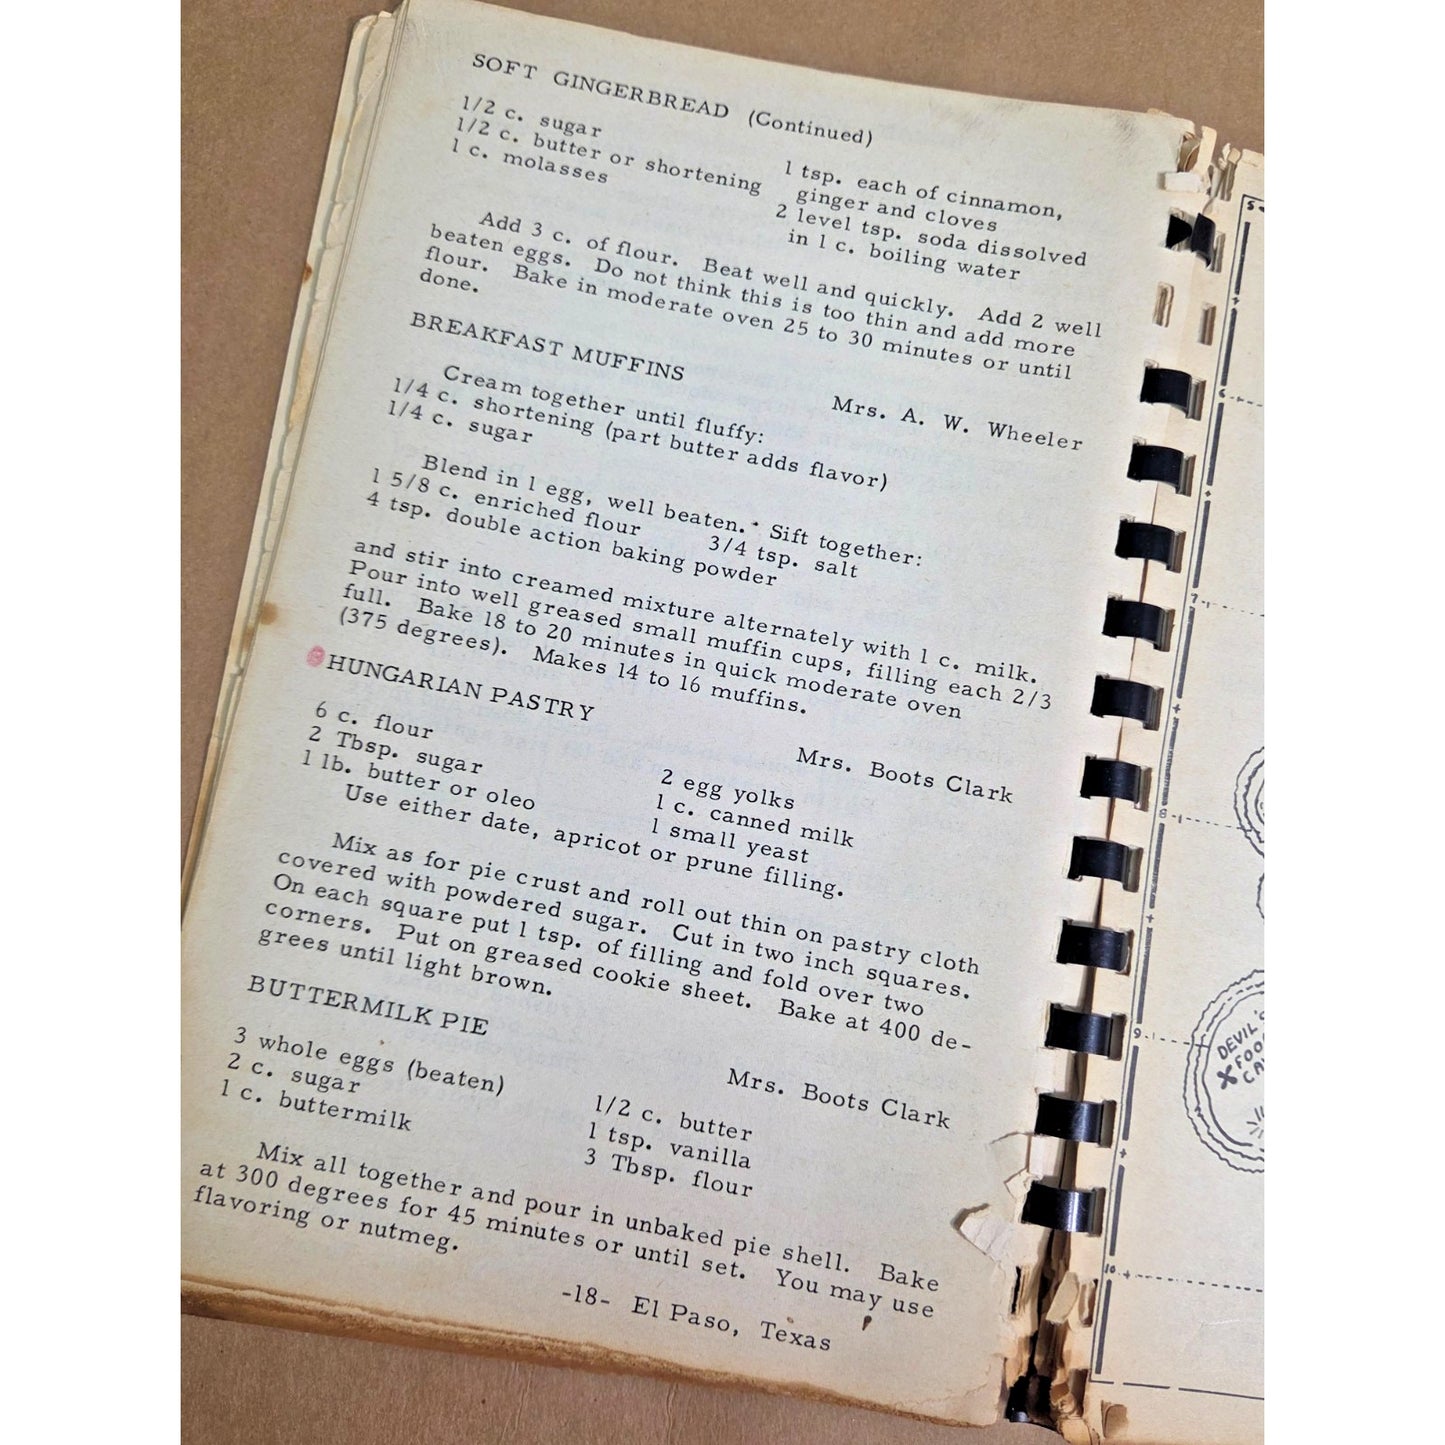 SOFT GINGERBREAD (Continued)
1/2 c. sugar
1/2 c. butter or shortening
1 c. molasses
1 tsp. each of cinnamon,
ginger and cloves
2 level tsp. soda dissolved
in 1 c. boiling water
Add 3 c. of flour. Beat well and quickly. Add 2 well
beaten eggs. Do not think this is too thin and add more
flour. Bake in moderate oven 25 to 30 minutes or until
done.
BREAKFAST MUFFINS
Mrs. A. W. Wheeler
Cream together until fluffy:
1/4 c. shortening (part butter adds flavor)
1/4 c. sugar
Blend in 1 egg, well beaten. Sift together:
1 5/8 c. enriched flour 3/4 tsp. salt
4 tsp. double action baking powder
and stir into creamed mixture alternately with 1 c. milk.
Pour into well greased small muffin cups, filling each 2/3
full. Bake 18 to 20 minutes in quick moderate oven
(375 degrees). Makes 14 to 16 muffins.
HUNGARIAN PASTRY
Mrs. Boots Clark
6 c. flour
2 Tbsp. sugar
1 lb. butter or oleo
2 egg yolks
1 c. canned milk
1 small yeast
Use either date, apricot or prune filling.
Mix as for pie crust and roll out thin on pastry cloth
covered with powdered sugar. Cut in two inch squares.
On each square put 1 tsp. of filling and fold over two
corners. Put on greased cookie sheet. Bake at 400 de-
grees until light brown.
BUTTERMILK PIE
Mrs. Boots Clark
3 whole eggs (beaten)
2 c. sugar
1 c. buttermilk
1/2 c. butter
1 tsp. vanilla
3 Tbsp. flour
Mix all together and pour in unbaked pie shell. Bake
at 300 degrees for 45 minutes or until set. You may use
flavoring or nutmeg.
-18- El Paso, Texas
5
6
7
8
9
10
DEVIL'S